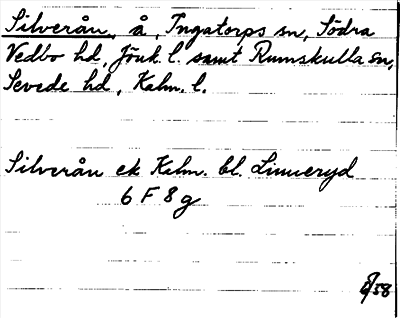 Silverån, å, Ingatorps sn, Södra
Vedbo hd, Jönk. l. samt Rumskulla sn,
Sevede hd, Kalm. l.
Silverån ek Kalm. bl. Linneryd
6 F 8 g
/58